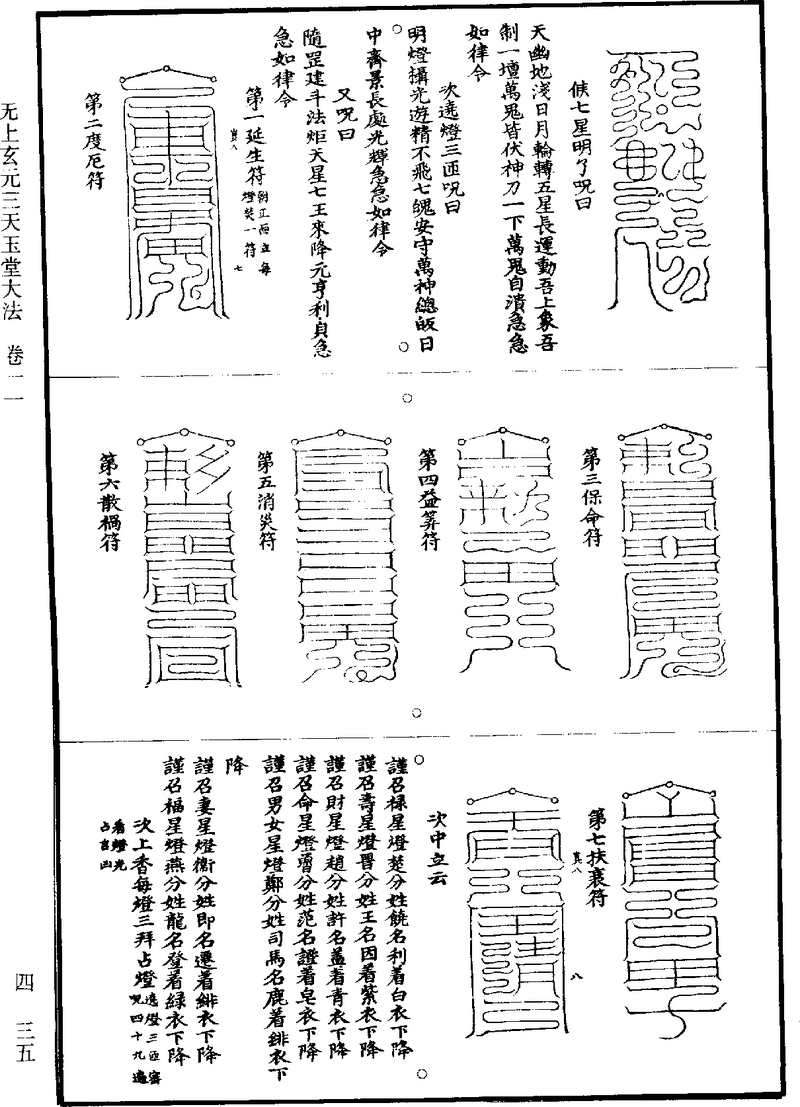 候七星明了呪曰
天幽地淺日月輪轉五星長運動吾上象吾
制一壇萬鬼皆伏神刀一下萬鬼自潰急急
如律令
次遶燈三匝呪曰
明燈攝光遊精不飛七魄安守萬神總皈日
中齋景長處光輝急急如律令
又呪曰
隨罡建斗法炬天星七王來降元亨利貞急
急如律令
第一延生符
側正面立每
燈焚一符
七
第二度厄符
第三保命符
第四益筭符
第五消災符
第六散禍符
第七扶衰符
八
次中立云
謹召禄星燈楚分姓饒名利着白衣下降
謹召壽星燈晋分姓王名因着紫衣下降
謹召財星燈趙分姓許名蓋着青衣下降
謹召命星燈魯分姓范名證着皂衣下降
謹召男女星燈鄭分姓司馬名鹿着緋衣下
降
謹召妻星燈衛分姓即名遷着緋衣下降
謹召福星燈燕分姓龍名登着緑衣下降
次上香每燈三拜占燈
遶燈三匝密
呪四十九遍
看燈光
占吉凶
无上玄元三天玉堂大法 卷二一
四 三五